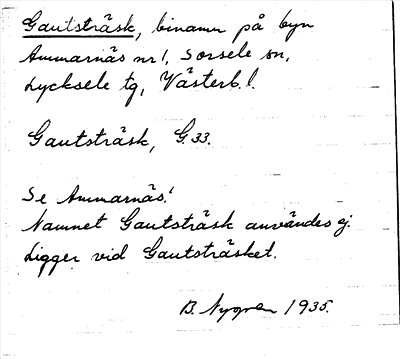 Gautsträsk, binamn på byn
Ammarnäs nr 1, Sorsele sn,
Lycksele tg, Västerb. l.
Gautsträsk, G. 33.
Se Ammarnäs!
Namnet Gautsträsk användes ej.
Ligger vid Gautsträsket.
B. Nygren 1935.